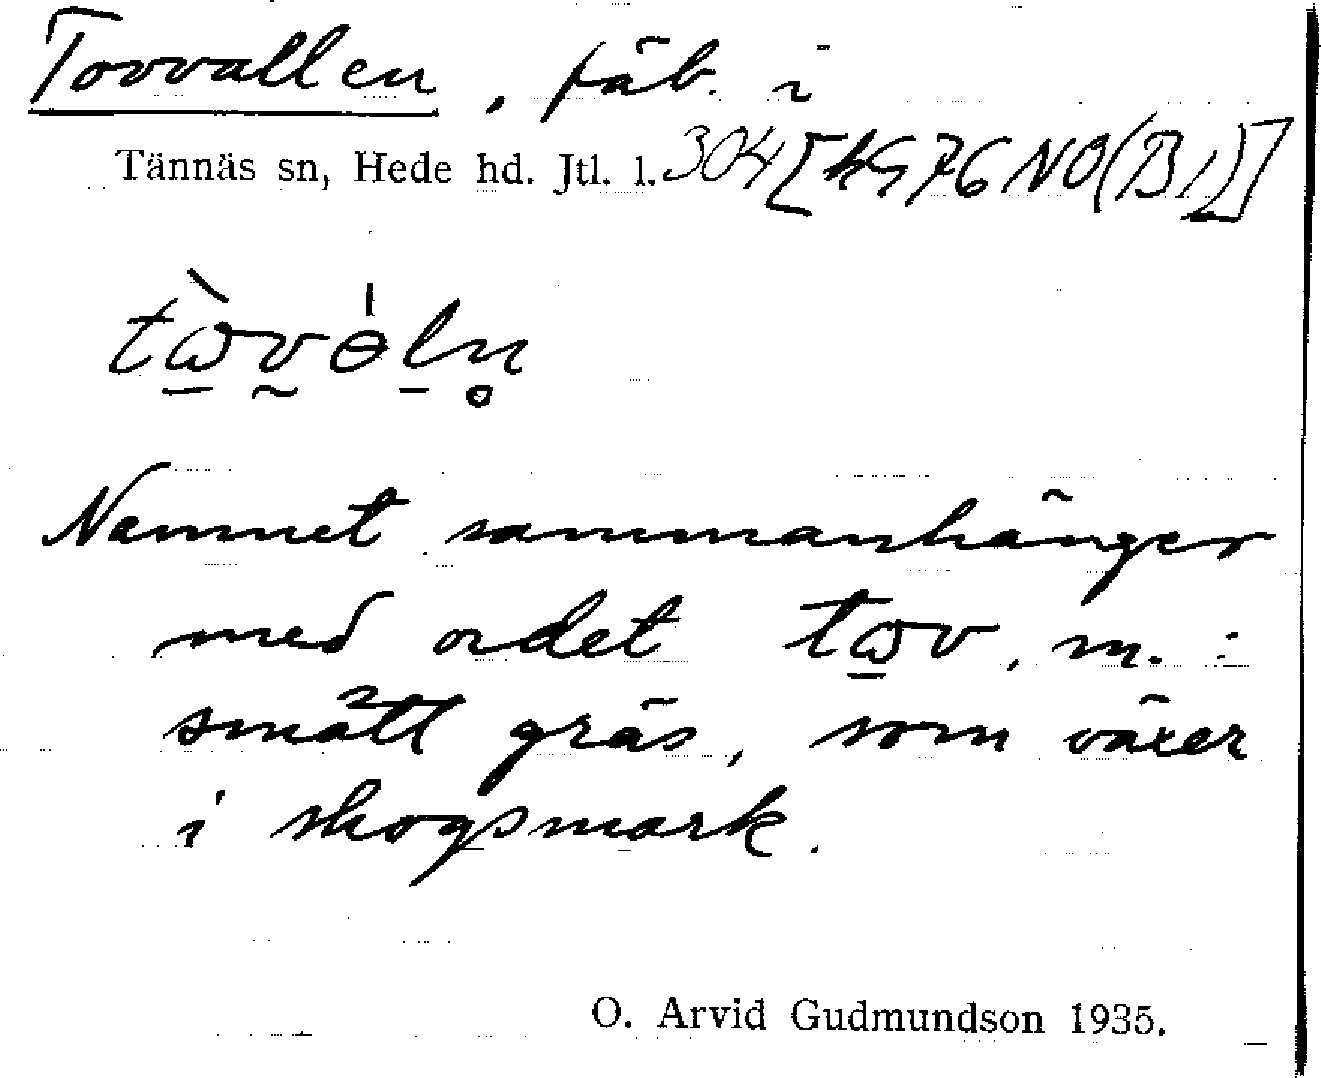 Tovvallen, fäb. i
Tännäs sn, Hede hd. Jtl. l. 304 [kg76 NO(B1)]
Namnet sammanhänger
med ordet tωv, m. :
smått gräs, som växer
i skogsmark.
O. Arvid Gudmundson 1935.